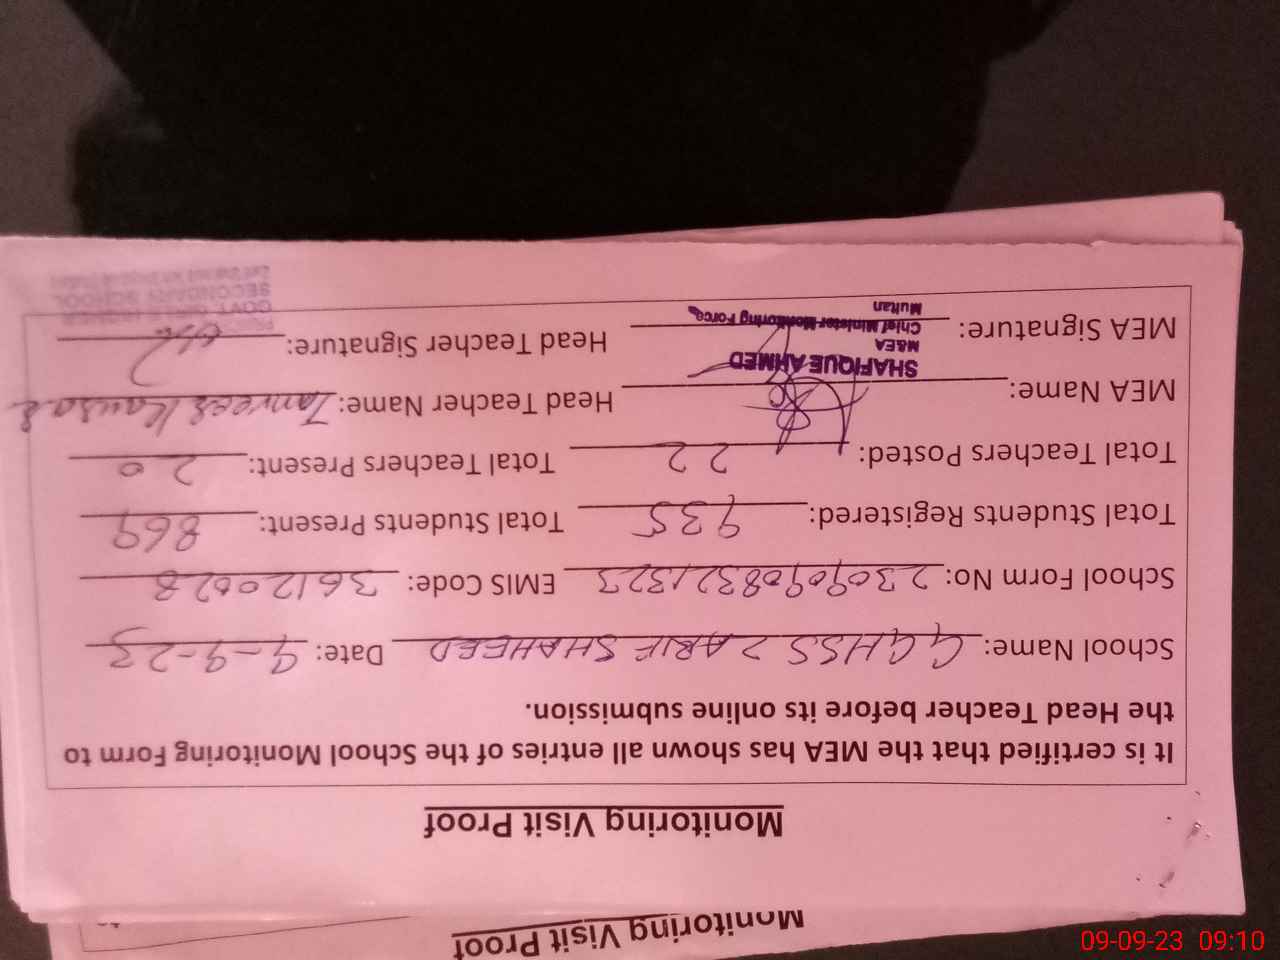 Monitoring Visit Proof
It is certified that the MEA has shown all entries of the School Monitoring Form to
the Head Teacher before its online submission.
School Name: GGHSS 2 ARIF SHAHEED Date: 9-9-23
School Form No: 23090908321323 EMIS Code: 36120028
Total Students Registered: 935 Total Students Present: 869
Total Teachers Posted: 22 Total Teachers Present: 20
MEA Name: Head Teacher Name: Tanveer Kausar
SHAFIQUE AHMED
M&EA
Chief Minister Monitoring Force,
Multan
MEA Signature: Head Teacher Signature:
GOVT.
SECONDARY SCHOOL
Monitoring Visit Proof
09-09-23 09:10